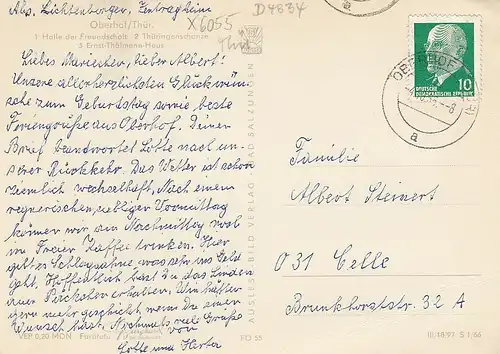 Abs. Lichtenberger, Zentralheim
Oberhof/Thür.
1 Halle der Freundschaft 2 Thüringenschanze
3 Ernst-Thälmann-Haus
X6055
D4834
Liebes Mariechen, lieber Albert!
Unsere allerherzlichsten Glückwün-
sche zum Geburtstag sowie beste
Feriengrüße aus Oberhof. Deinen
Brief beantwortet Lotte nach un-
serer Rückkehr. Das Wetter ist schon
ziemlich wechselhaft. Nach einem
regnerischen, nebligen Vormittag
können wir am Nachmittag wohl
im Freien Kaffee trinken. Hier
gibt es Schlagsahne, was sehr ins Geld
geht. Hoffentlich hast Du das
aus Päckchen erhalten. Wir hätten
gern mehr geschickt, wenn Du einen
Wunsch hast. Nochmals viele Grüße
von
Lotte und Herta
VEB 0,20 MDN
FO 55
AUSLESE-BILD-VERLAG BAD SALZUNGEN
OBERHOF
a
10
DEUTSCHE
DEMOKRATISCHE REPUBLIK
Familie
Albert Steinert
031 Celle
Brunkhorststr. 32 A
III/18/97 S 1/66